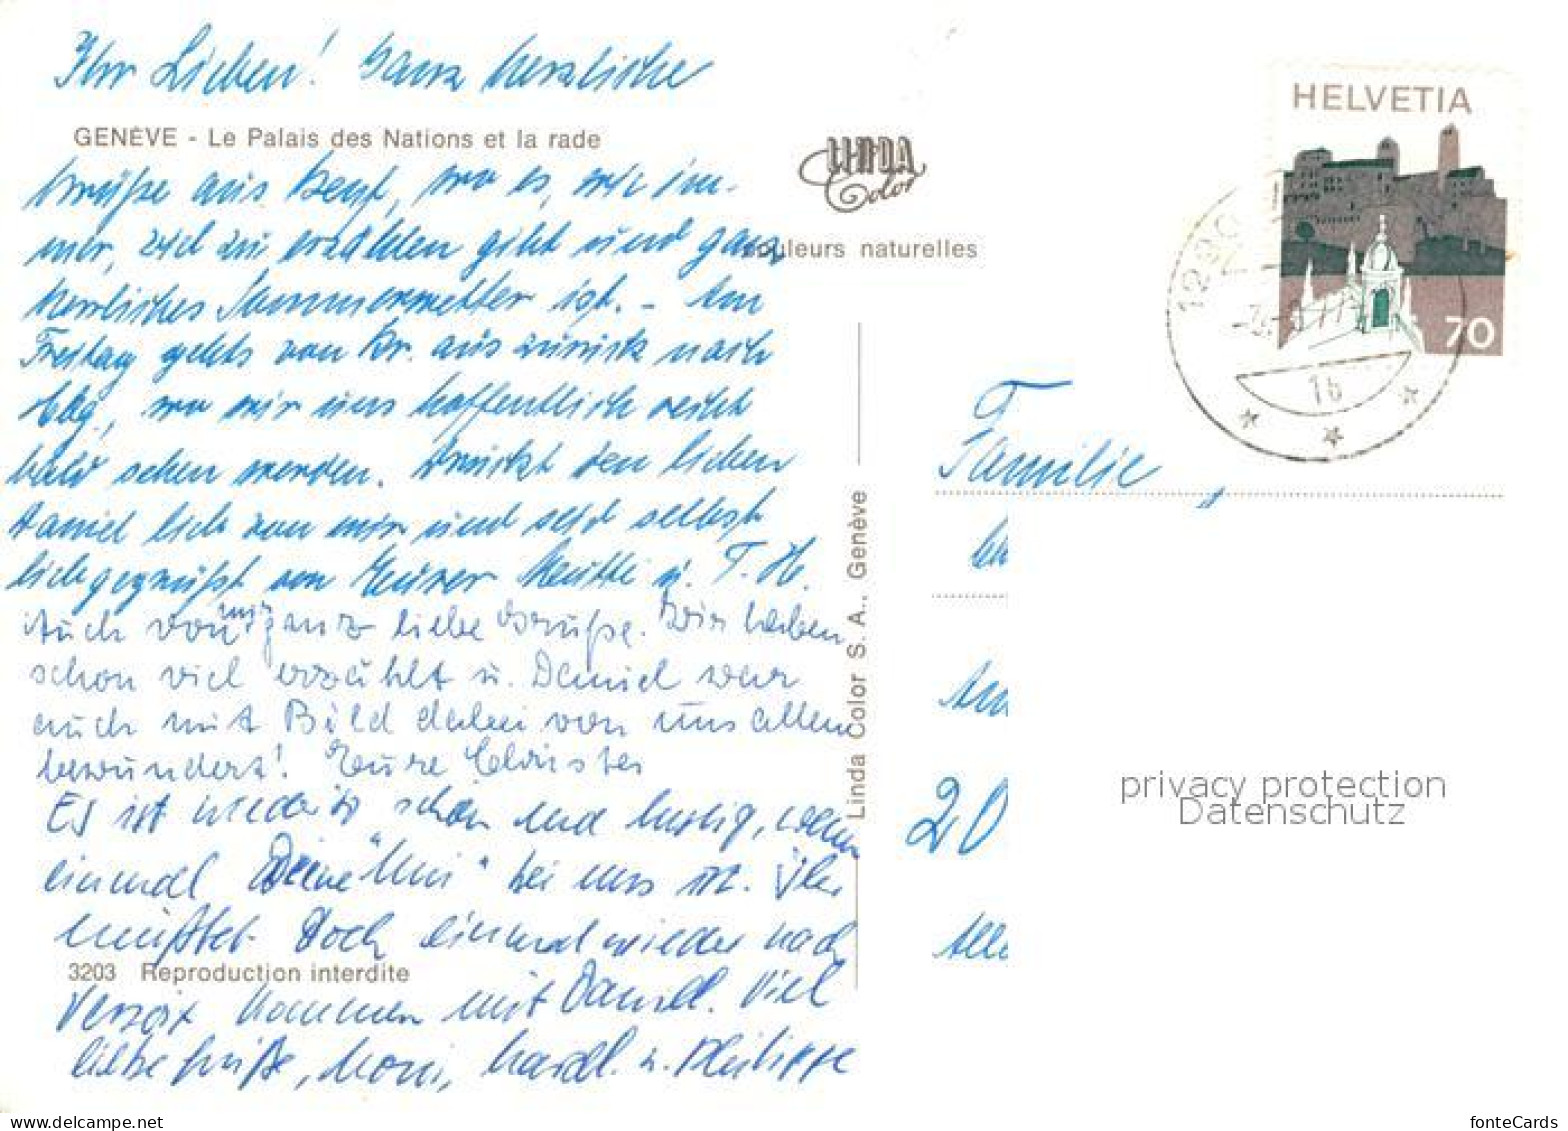 Ihr Lieben! Ganz herzliche
GENÈVE - Le Palais des Nations et la rade
Grüße aus Genf, wo es, wie im-
mer, viel zu erzählen gibt und ganz
herrliches Sommerwetter ist. - Am
Freitag gehts von hier aus zurück nach
wo wir uns hoffentlich recht
bald sehen werden. Drückt den lieben
Daniel lieb von mir und seid selbst
liebgegrüßt von Eurer Mutti u. T. H.
Auch von mir ganz liebe Grüße. Wir haben
schon viel erzählt u. Daniel war
auch mit Bild dabei von uns allen
bewundert! Eure
Es ist wieder so schön und lustig, wenn
einmal Deine "Mui" bei uns ist. Ihr
müßtet doch einmal wieder nach
3203 Reproduction interdite
Versoix kommen mit Daniel. Viel
liebe Grüße, Moni, u. Philippe
LINDA
Color
couleurs naturelles
Linda Color S. A., Genève
HELVETIA
70
1290
16
Familie
20
privacy protection
Datenschutz
www.delcampe.net
fonteCards